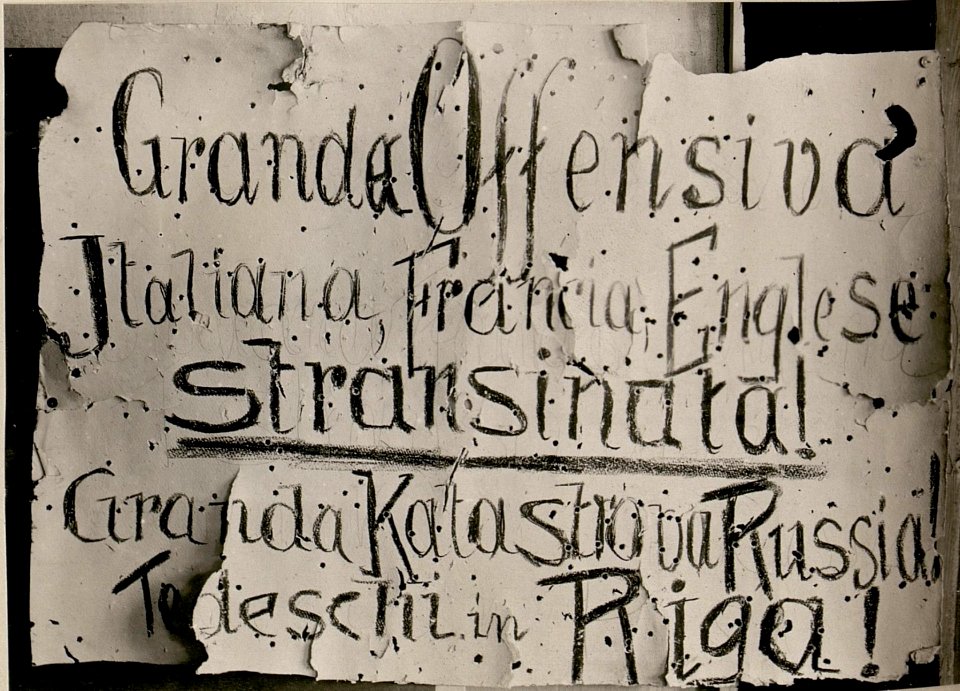 Granda Offensiva
Italiana, Francia, Englese
stransinata!
Granda Katastrova Russia!
Tedeschi in Riga!